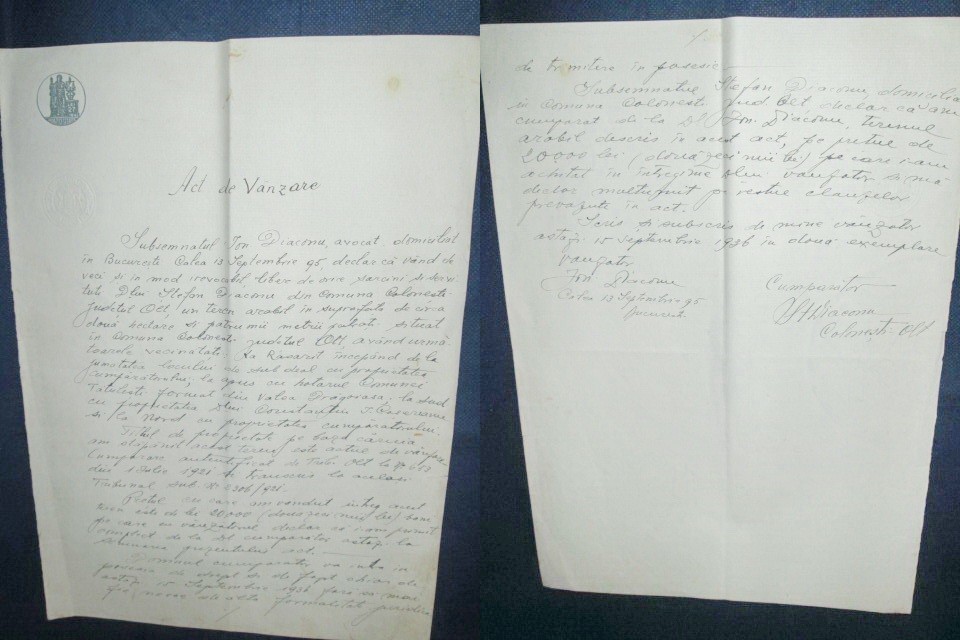 Act de Vânzare
Subsemnatul Ion Diaconu, avocat domiciliat
în București Calea 13 Septembrie 95 declar că vând de
veci și în mod irevocabil, liber de orice sarcini și servi
tuti Dlui Ștefan Diaconu din Comuna Colonești
județul Olt, un teren arabil în suprafață de circa
două hectare și patru mii metri patrati, situat
în Comuna Colonești județul Olt, având urmă
toarele vecinatati: La Răsărit începând de la
jumatatea locului de sub deal cu proprietatea
cumpărătorului, la apus cu hotarul Comunei
Tătulești format din Valea Drăgoasa, la sud
cu proprietatea Dlui Constantin I.
și la Nord cu proprietatea cumpăratorului.
Titlul de proprietate pe baza căruia
am stăpânit acest teren este actul de vânzare
cumpărare autentificat de Trib. Olt la No
din 1 1921 și transcris la acelasi
Tribunal sub No /921.
Prețul cu care am vândut întreg acest
teren este de lei 20000 (douăzeci mii lei) bani
pe care eu vânzătorul declar că i-am primit
complect de la Dl cumparator astazi la
semnarea prezentului act.
Domnul cumparator va intra în
posesia de drept și de fapt chiar de
astăzi 15 Septembrie 1936 fara a mai
fi nevoie de alta formalitate
de trimitere în posesie
Subsemnatul Ștefan Diaconu domiciliat
în Comuna Colonești jud Olt declar că am
cumparat de la Dl Ion Diaconu, terenul
arabil descris în acest act, pe prețul de
20000 lei (douăzeci mii lei) pe care i-am
achitat în întregime dlui vânzator și mă
declar mulțumit pe restul clauzelor
prevazute în act.
Scris și subscris de mine vânzator
astăzi 15 septembrie 1936 în două exemplare
Vanzator
Ion Diaconu
Calea 13 Septembrie 95
București
Cumparator
Diaconu
Colonești-Olt